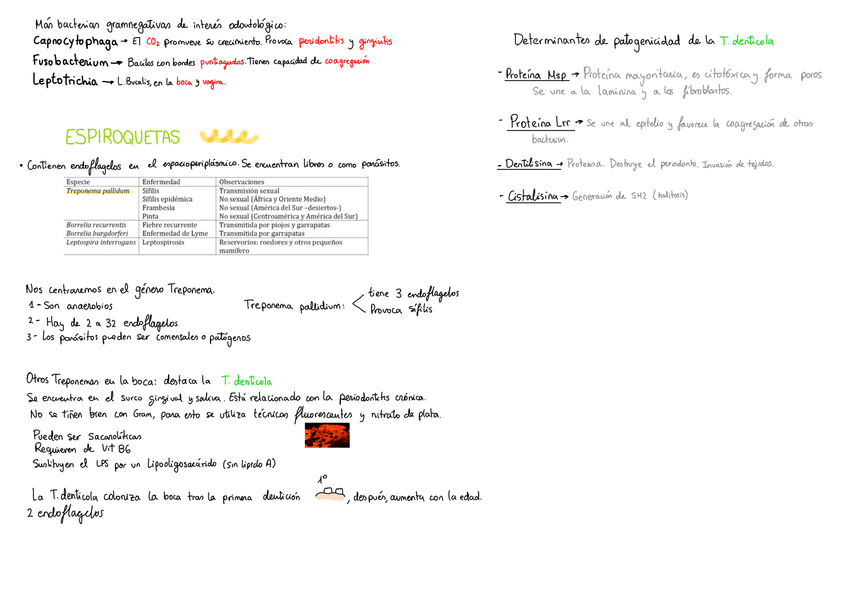 Más bacterias gramnegativas de interés odontológico:
Capnocytophaga → El CO2 promueve su crecimiento. Provoca periodontitis y gingivitis
Fusobacterium → Bacilos con bordes puntiagudos. Tienen capacidad de coagregación
Leptotrichia → L. Bucalis, en la boca y vagina.
ESPIROQUETAS
• Contienen endoflagelos en el espacio periplásmico. Se encuentran libres o como parásitos.
Especie Enfermedad Observaciones
Treponema pallidum Sífilis Transmisión sexual
Sífilis epidémica No sexual (África y Oriente Medio)
Frambesia No sexual (América del Sur –desiertos-)
Pinta No sexual (Centroamérica y América del Sur)
Borrelia recurrentis Fiebre recurrente Transmitida por piojos y garrapatas
Borrelia burgdorferi Enfermedad de Lyme Transmitida por garrapatas
Leptospira interrogans Leptospirosis Reservorios: roedores y otros pequeños
mamífero
Nos centraremos en el género Treponema.
1 - Son anaerobios
2 - Hay de 2 a 32 endoflagelos
3 - Los parásitos pueden ser comensales o patógenos
Treponema pallidium:
tiene 3 endoflagelos
Provoca sífilis
Otros Treponemas en la boca: destaca la T. denticola
Se encuentra en el surco gingival y saliva. Está relacionado con la periodontitis crónica.
No se tiñen bien con Gram, para esto se utiliza técnicas fluorescentes y nitrato de plata.
Pueden ser Sacarolíticas
Requieren de Vit B6
Sustituyen el LPS por un Lipooligosacárido (sin lípido A)
1º
La T. denticola coloniza la boca tras la primera dentición , después, aumenta con la edad.
2 endoflagelos
Determinantes de patogenicidad de la T. denticola
- Proteína Msp → Proteína mayoritaria, es citotóxica y forma poros
Se une a la laminina y a los fibroblastos.
- Proteína Lrr → Se une al epitelio y favorece la coagregación de otras
bacterias.
- Dentilisina → Proteasa. Destruye el periodonto. Invasión de tejidos.
- Cistalisina → Generación de SH2 (halitosis)